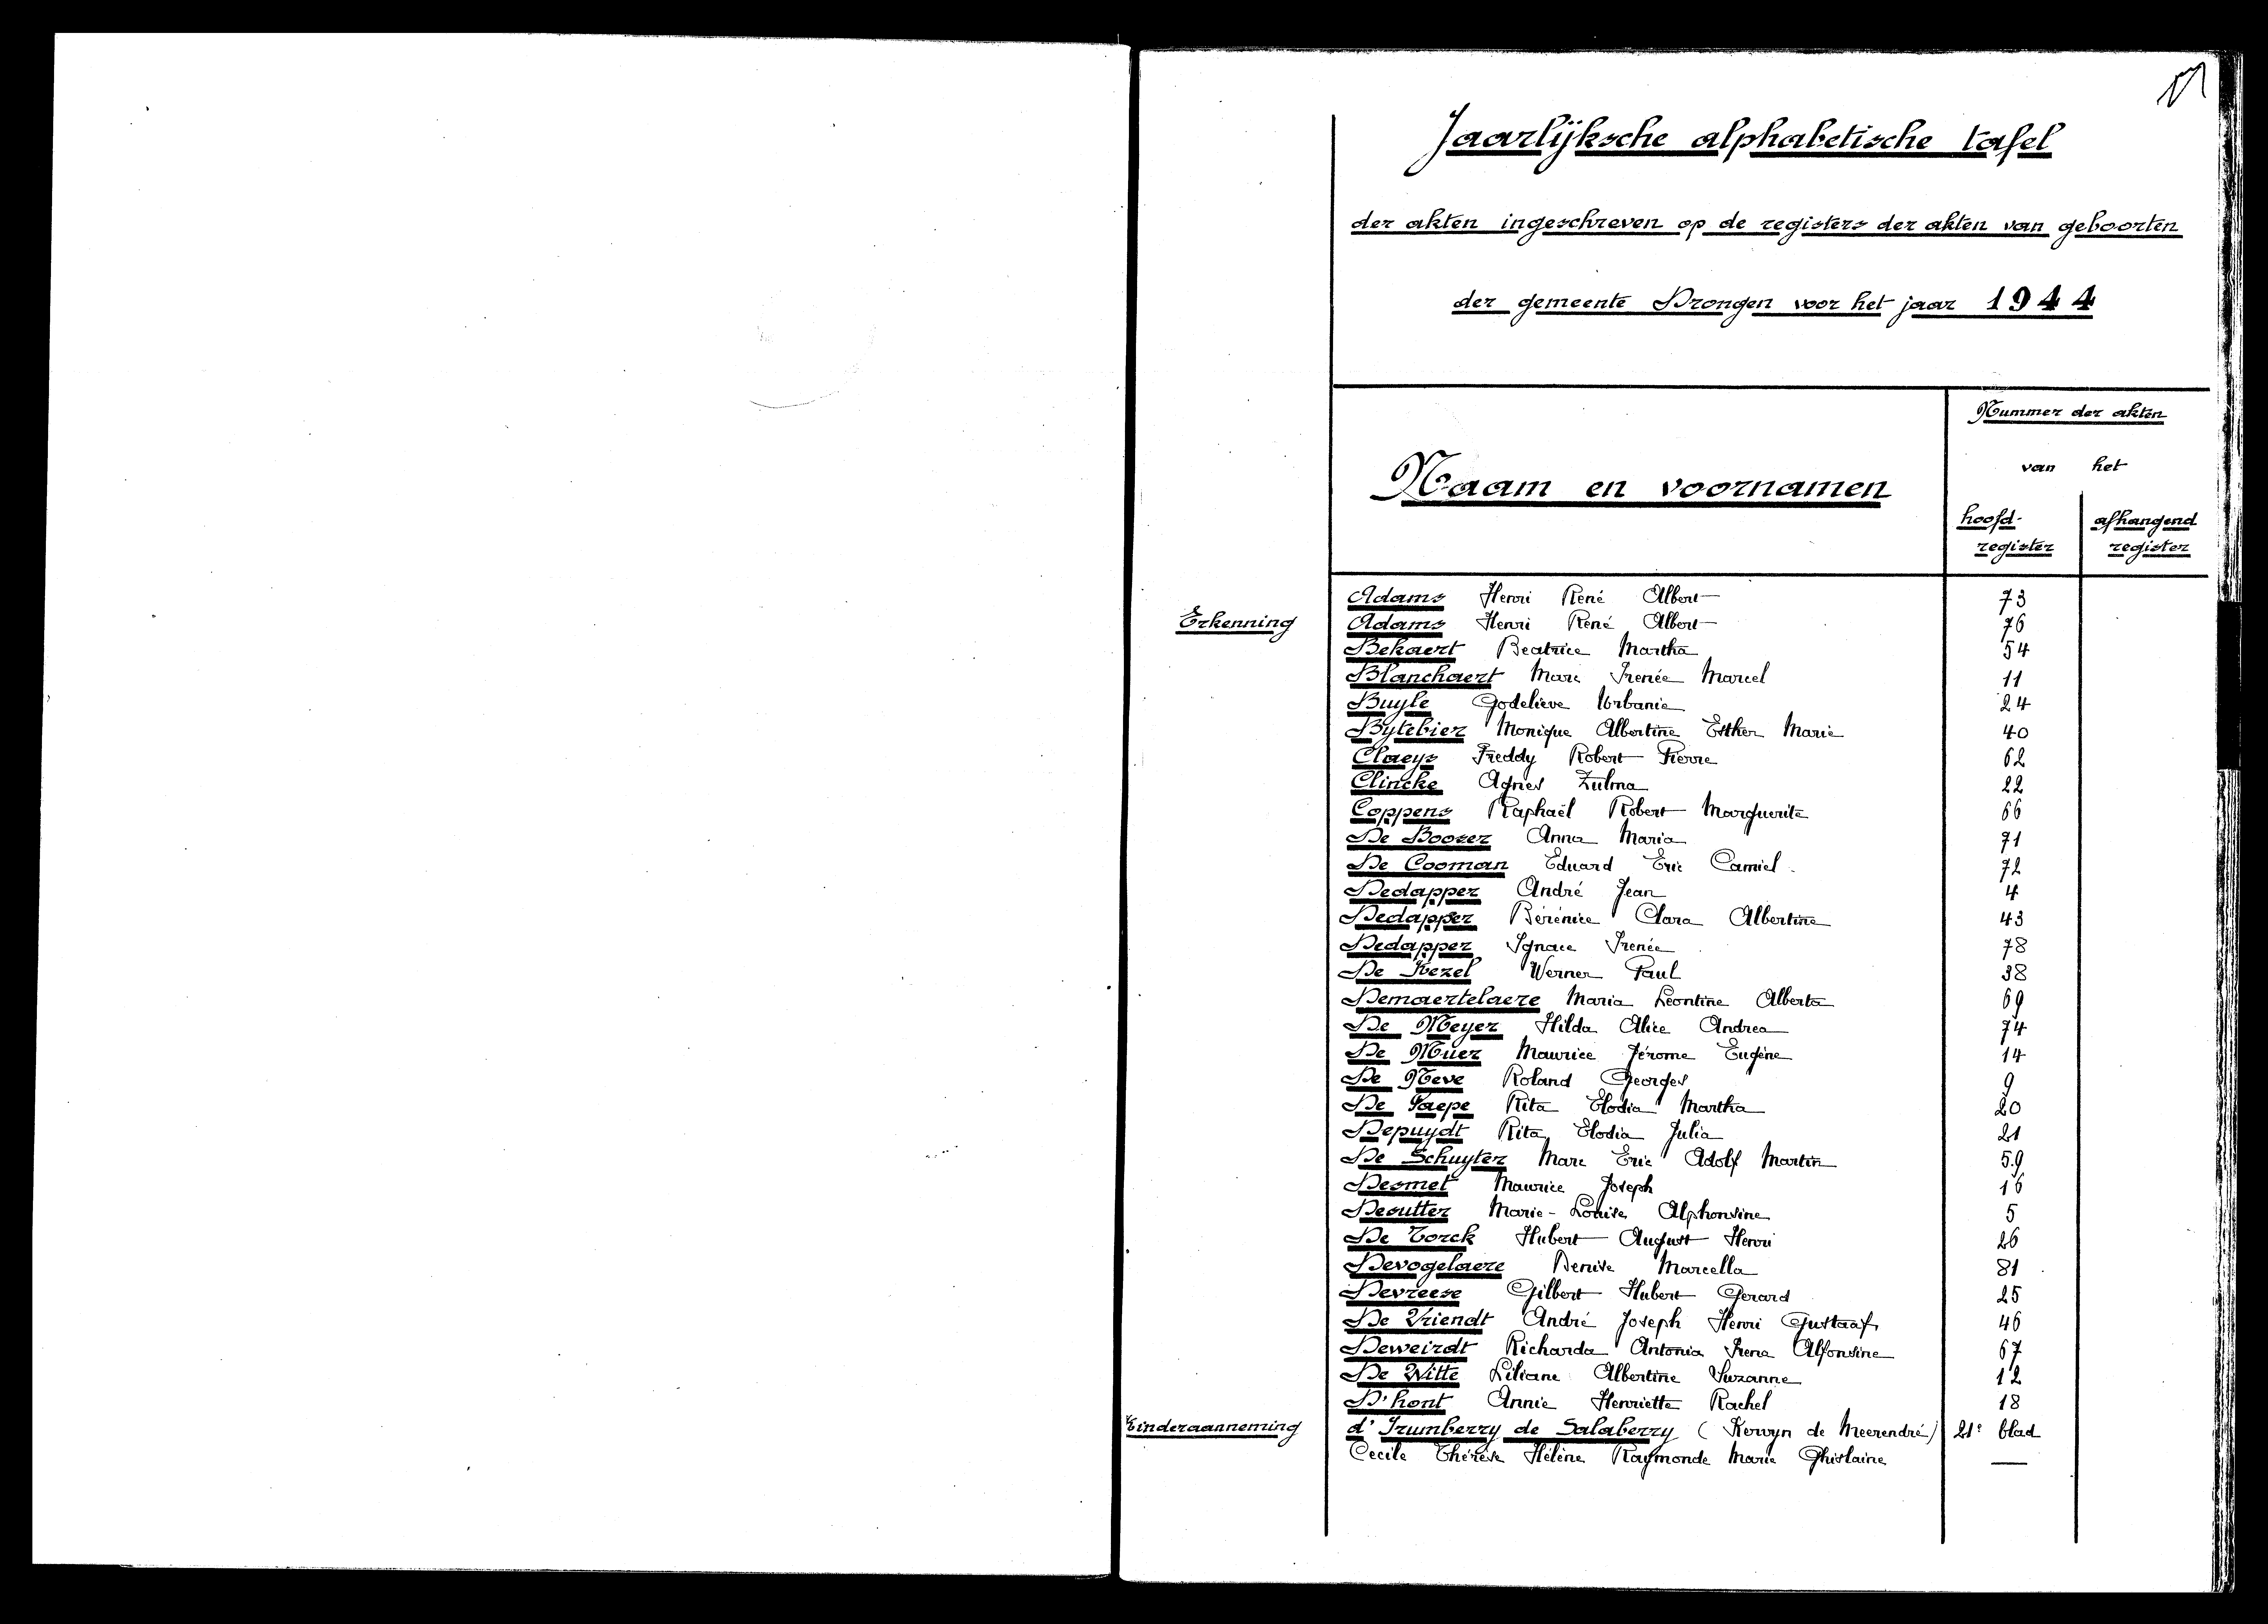 Jaarlijksche alphabetische tafel
der akten ingeschreven op de registers der akten van geboorten
der gemeente Drongen voor het jaar 1944
Naam en voornamen
Nummer der akten
van het
hoofd-register
afhangend register
Adams Henri René Albert 73
Erkenning Adams Henri René Albert 76
Bekaert Beatrice Martha 54
Blanchaert Marc Irenée Marcel 11
Buyle Godelieve Urbanie 24
Bytebier Monique Albertine Esther Marie 40
Claeys Freddy Robert Pierre 62
Clincke Agnes Zulma 22
Coppens Raphaël Robert Marguerite 66
De Boever Anna Maria 71
De Cooman Eduard Eric Camiel 72
Dedapper André Jean 4
Dedapper Bérénice Clara Albertine 43
Dedapper Ignace Irenée 78
De Kezel Werner Paul 38
Demaertelaere Maria Leontine Alberta 69
De Meyer Hilda Alice Andrea 74
De Muer Maurice Jérome Eugène 14
De Neve Roland Georges 9
De Paepe Rita Elodia Martha 20
Depuydt Rita Elodia Julia 21
De Schuyter Marc Eric Adolf Martin 59
Desmet Maurice Joseph 16
Desutter Marie-Louise Alphonsine 5
De Torck Hubert August Henri 26
Devogelaere Denise Marcella 81
Devreese Gilbert Hubert Gerard 25
De Vriendt André Joseph Henri Gustaaf 46
Deweirdt Richarda Antonia Irena Alfonsine 67
De Witte Liliane Albertine Suzanne 12
D'hont Annie Henriette Rachel 18
Kinderaanneming d'Irumberry de Salaberry (Kervyn de Meerendré) 21e blad
Cecile Thérèse Hélène Raymonde Marie Ghislaine —